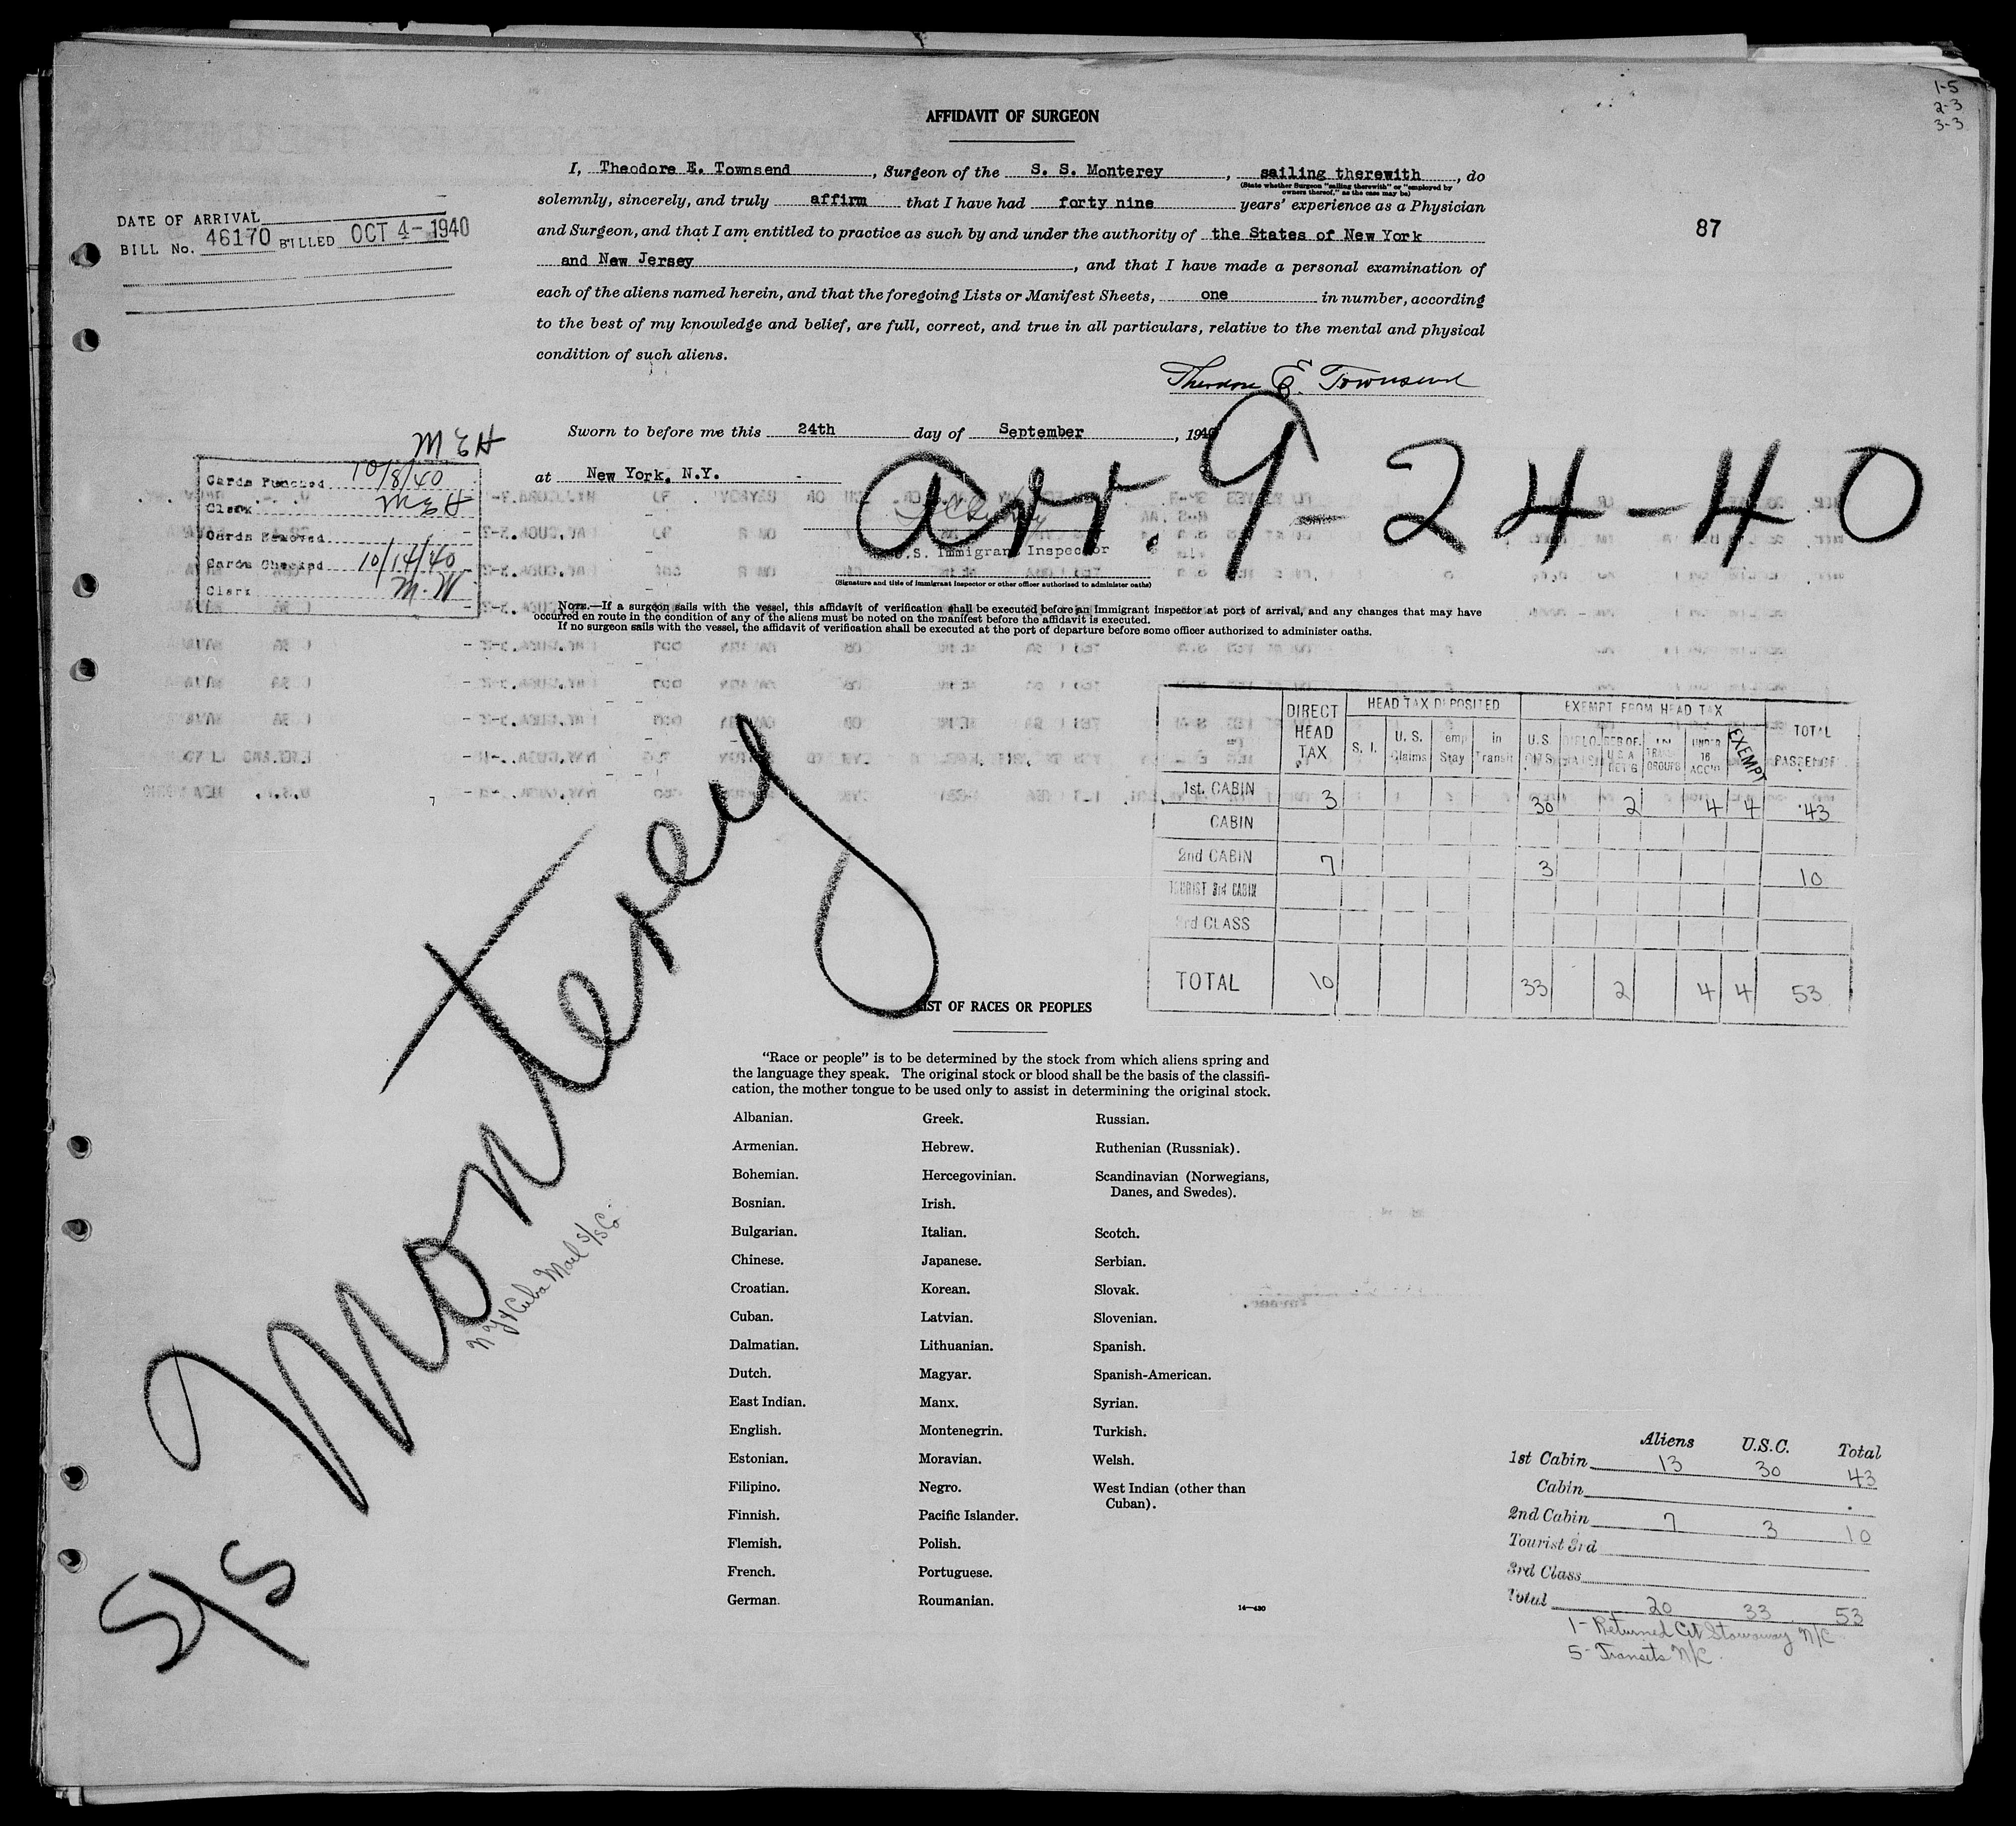 1-5
2-3
3-3
AFFIDAVIT OF SURGEON
I, Theodore E. Townsend, Surgeon of the S. S. Monterey, sailing therewith, do
(State whether Surgeon "sailing therewith" or "employed by
owners thereof," as the case may be)
solemnly, sincerely, and truly affirm that I have had forty nine years' experience as a Physician
and Surgeon, and that I am entitled to practice as such by and under the authority of the States of New York
and New Jersey, and that I have made a personal examination of
each of the aliens named herein, and that the foregoing Lists or Manifest Sheets, one in number, according
to the best of my knowledge and belief, are full, correct, and true in all particulars, relative to the mental and physical
condition of such aliens.
Theodore E. Townsend
87
DATE OF ARRIVAL
BILL No. 46170 BILLED OCT 4-1940
Sworn to before me this 24th day of September, 1940
at New York, N.Y.
arr. 9-24-40
U.S. Immigrant Inspector
(Signature and title of immigrant inspector or other officer authorized to administer oaths)
MEH
Cards Punched 10/8/40
Clerk MEH
Cards Removed
Cards Checked 10/14/40
Clerk M.W
NOTE.—If a surgeon sails with the vessel, this affidavit of verification shall be executed before an immigrant inspector at port of arrival, and any changes that may have
occurred en route in the condition of any of the aliens must be noted on the manifest before the affidavit is executed.
If no surgeon sails with the vessel, the affidavit of verification shall be executed at the port of departure before some officer authorized to administer oaths.
DIRECT HEAD TAX HEAD TAX DEPOSITED EXEMPT FROM HEAD TAX TOTAL
S. I. U. S. Claims Temp Stay in Transit U.S. CITS UNDER 16 ACC'D EXEMPT
1st. CABIN 3 30 2 4 4 43
CABIN
2nd CABIN 7 3 10
TOURIST 3rd CABIN
3rd CLASS
TOTAL 10 33 2 4 4 53
S/S Monterey
N Y & Cuba Mail S/S Co.
LIST OF RACES OR PEOPLES
"Race or people" is to be determined by the stock from which aliens spring and
the language they speak. The original stock or blood shall be the basis of the classifi-
cation, the mother tongue to be used only to assist in determining the original stock.
Albanian. Greek. Russian.
Armenian. Hebrew. Ruthenian (Russniak).
Bohemian. Hercegovinian. Scandinavian (Norwegians,
Danes, and Swedes).
Bosnian. Irish.
Bulgarian. Italian. Scotch.
Chinese. Japanese. Serbian.
Croatian. Korean. Slovak.
Cuban. Latvian. Slovenian.
Dalmatian. Lithuanian. Spanish.
Dutch. Magyar. Spanish-American.
East Indian. Manx. Syrian.
English. Montenegrin. Turkish.
Estonian. Moravian. Welsh.
Filipino. Negro. West Indian (other than
Cuban).
Finnish. Pacific Islander.
Flemish. Polish.
French. Portuguese.
German. Roumanian.
14—430
Aliens U.S.C. Total
1st Cabin 13 30 43
Cabin
2nd Cabin 7 3 10
Tourist 3rd
3rd Class
Total 20 33 53
1- Returned Cit Stowaway N/C
5- Transits N/C